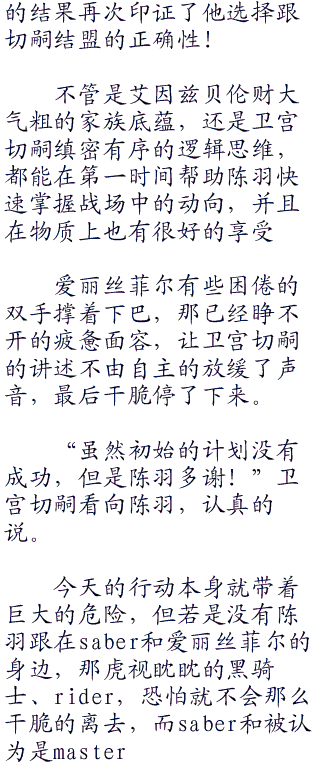 的结果再次印证了他选择跟
切嗣结盟的正确性！
不管是艾因兹贝伦财大
气粗的家族底蕴，还是卫宫
切嗣缜密有序的逻辑思维，
都能在第一时间帮助陈羽快
速掌握战场中的动向，并且
在物质上也有很好的享受
爱丽丝菲尔有些困倦的
双手撑着下巴，那已经睁不
开的疲惫面容，让卫宫切嗣
的讲述不由自主的放缓了声
音，最后干脆停了下来。
“虽然初始的计划没有
成功，但是陈羽多谢！”卫
宫切嗣看向陈羽，认真的
说。
今天的行动本身就带着
巨大的危险，但若是没有陈
羽跟在saber和爱丽丝菲尔的
身边，那虎视眈眈的黑骑
士、rider，恐怕就不会那么
干脆的离去，而saber和被认
为是master